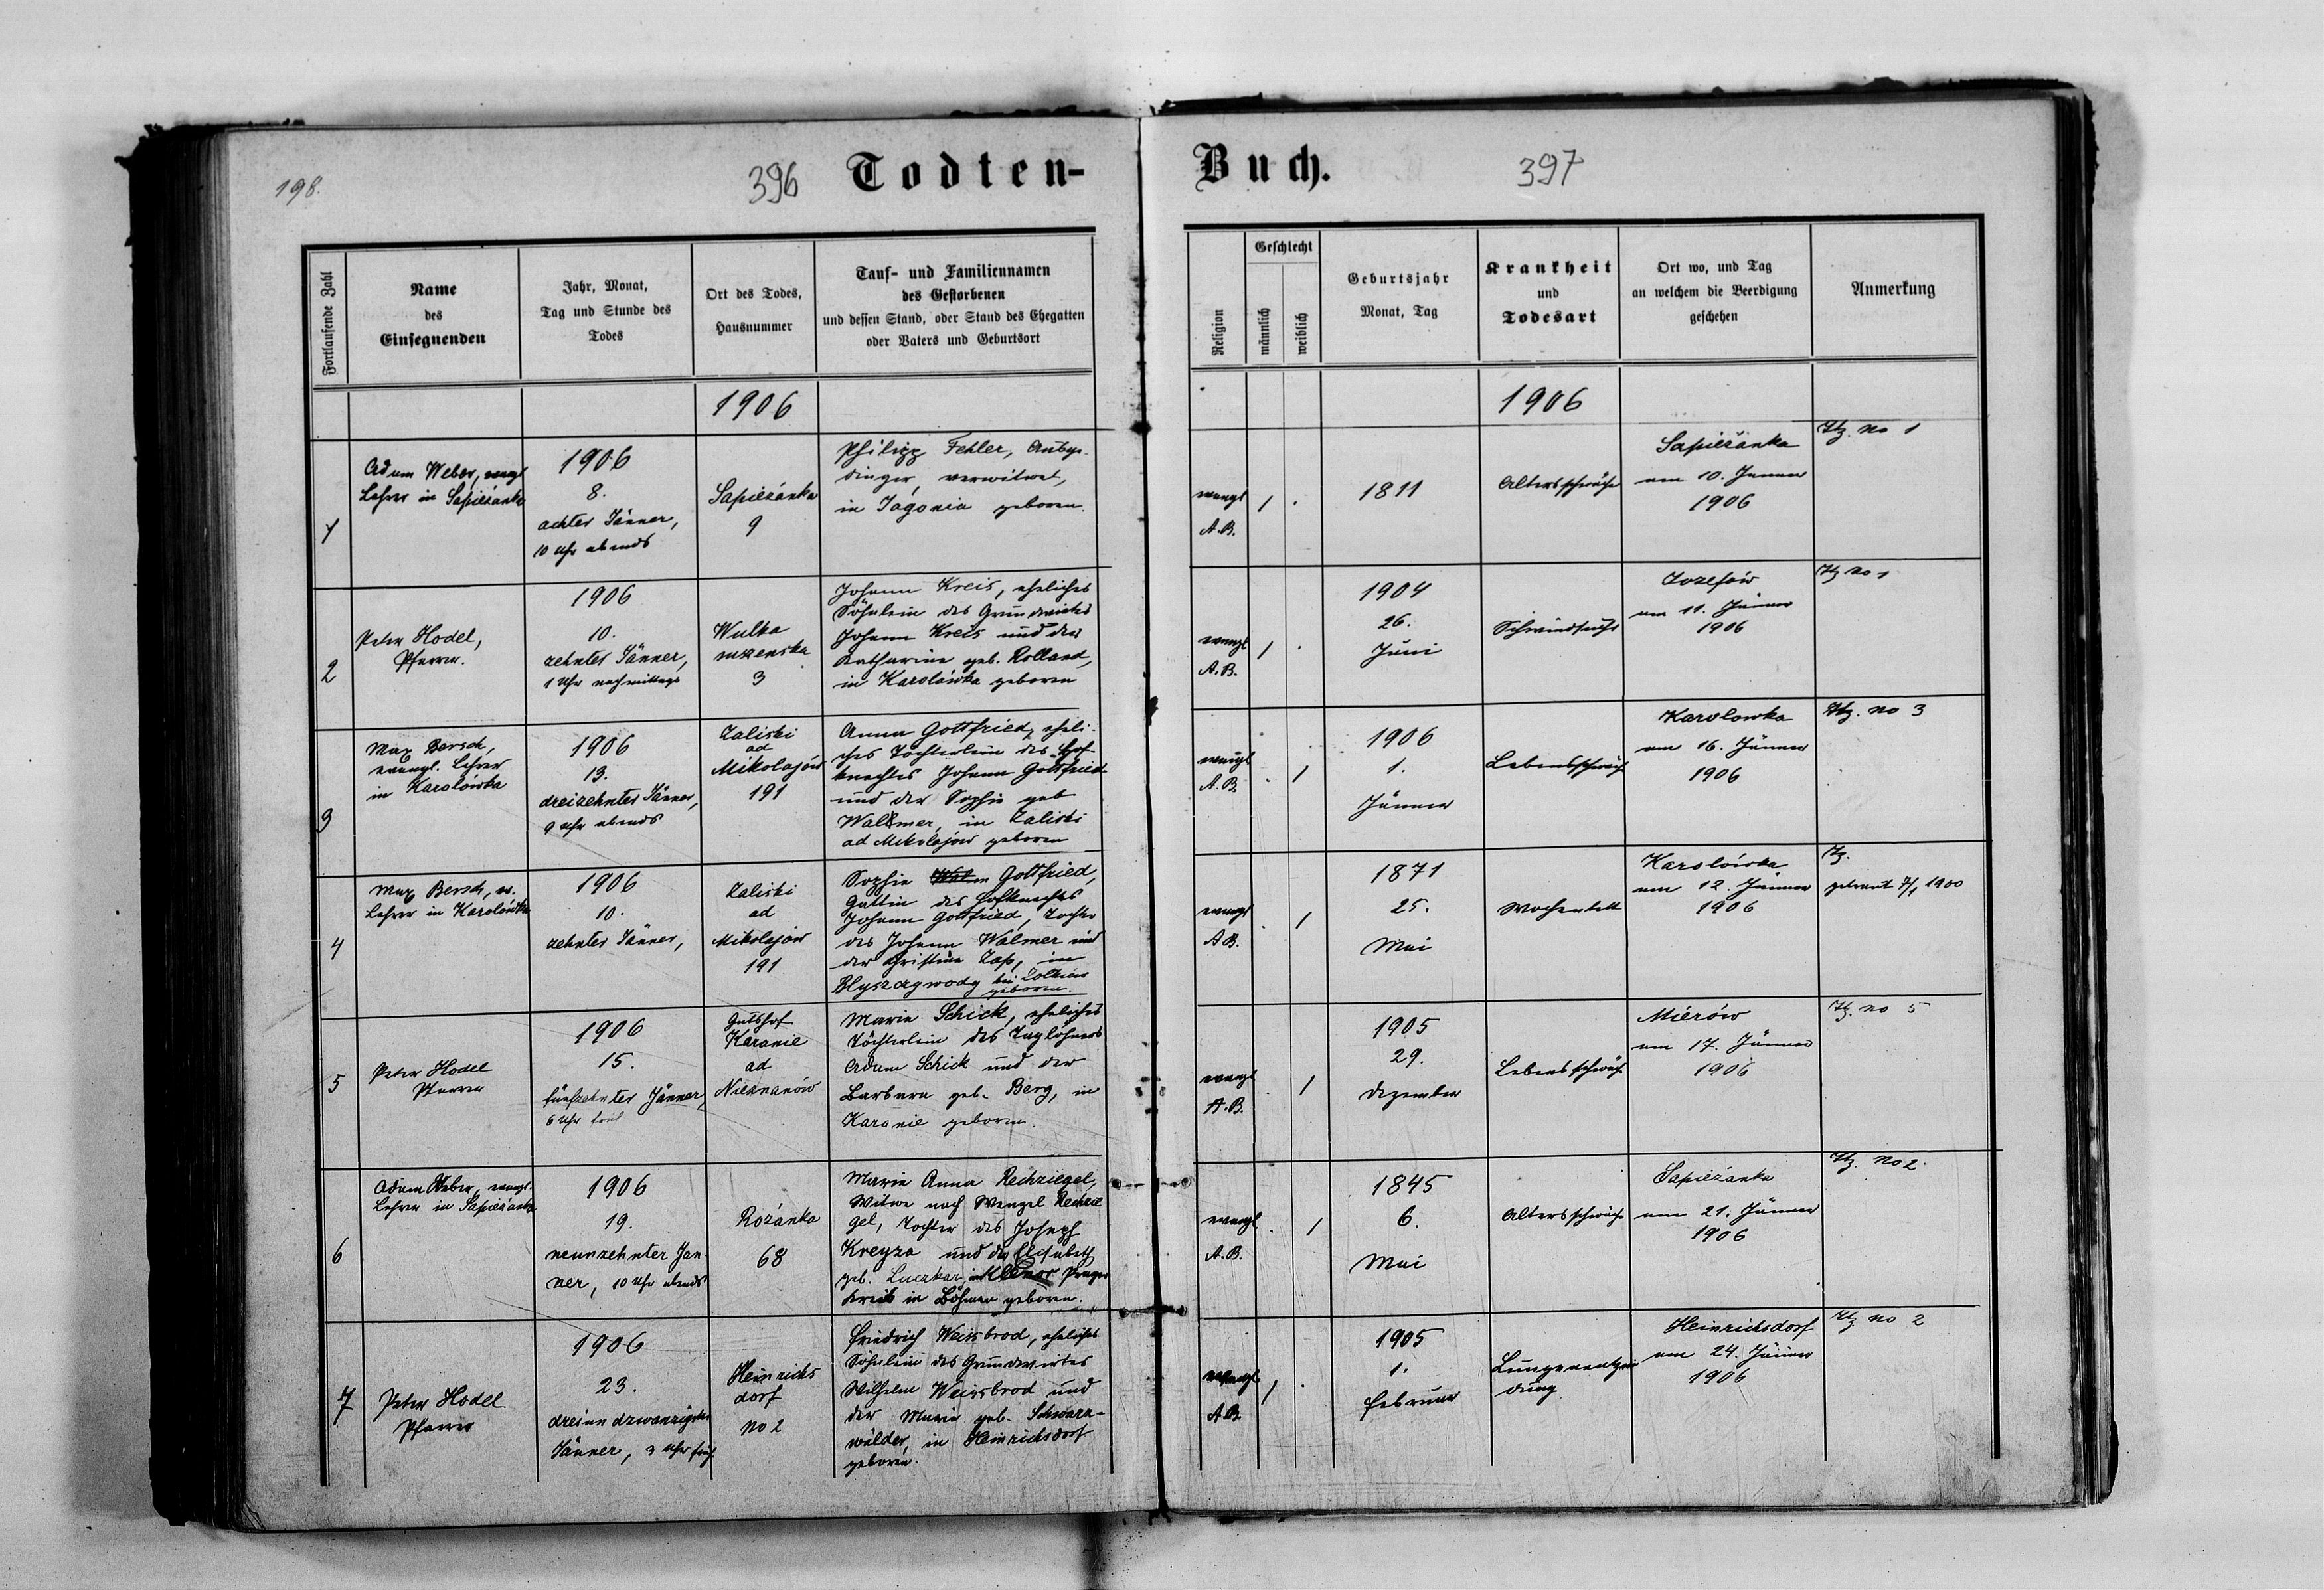 198.
396
Todten-
Buch.
397
Fortlaufende Zahl
Name
des
Einsegnenden
Jahr, Monat,
Tag und Stunde des
Todes
Ort des Todes,
Hausnummer
Tauf- und Familiennamen
des Gestorbenen
und dessen Stand, oder Stand des Ehegatten
oder Vaters und Geburtsort
Religion
Geschlecht
männlich
weiblich
Geburtsjahr
Monat, Tag
Krankheit
und
Todesart
Ort wo, und Tag
an welchem die Beerdigung
geschehen
Anmerkung
1906
1906
1
Adam Weber, evngl
Lehrer in Sapieżanka
1906
8.
achter Jänner,
10 Uhr abends
Sapieżanka
9
Philipp Fehler,
dinger, verwitwet,
in Jagonia geboren.
evangl
A.B.
1
1811
Altersschwäche
Sapieżanka
am 10. Jänner
1906
no 1
2
Peter Hodel,
Pfarrer.
1906
10.
zehnter Jänner,
1 Uhr nachmittags
Wulka
suszenska
3
Johann Kreis, eheliches
Söhnlein des Grundwirtes
Johann Kreis und der
Katharina geb. Rolland,
in Karolówka geboren
evangl
A.B.
1
1904
26.
Juni
Schwindsucht
Jozefów
am 11. Jänner
1906
no 1
3
Max Bersch,
evangl. Lehrer
in Karolówka
1906
13.
dreizehnter Jänner,
9 Uhr abends
Zaliski
ad
Mikolajów
191
Anna Gottfried, eheli-
ches Töchterlein des Hof-
knechtes Johann Gottfried
und der Sophie geb
Walmer, in Zaliski
ad Mikolajów geboren
evangl
A.B.
1
1906
1.
Jänner
Lebensschwäche
Karolowka
am 16. Jänner
1906
no 3
4
Max Bersch, ev.
Lehrer in Karolówka
1906
10.
zehnter Jänner,
Zaliski
ad
Mikolajów
191
Sophie Gottfried,
Gattin des Hofknechtes
Johann Gottfried, Tochter
des Johann Walmer und
der Christine Zap, in
Blyszczywody bei Zolkiew
geboren.
evangl
A.B.
1
1871
25.
Mai
Wochenbett
Karolówka
am 12. Jänner
1906
getraut 7/1 1900
5
Peter Hodel
Pfarrer
1906
15.
fünfzehnter Jänner,
6 Uhr früh
Gutshof
Karanie
ad
Nieznanów
Marie Schick, eheliches
Töchterlein des Taglöhners
Adam Schick und der
Barbara geb. Berg, in
Karanie geboren.
evangl
A.B.
1
1905
29.
Dezember
Lebensschwäche
Mierów
am 17. Jänner
1906
no 5
6
Adam Weber, evangl.
Lehrer in Sapieżanka
1906
19.
neunzehnter Jän-
ner, 10 Uhr abends
Rożanka
68
Marie Anna Rechziegel,
Witwe nach Wenzel Rechzie
gel, Tochter des Joseph
Kreyza und der Elisabeth
geb. Luczkar, in Prager
Kreis in Böhmen geboren.
evangl
A.B.
1
1845
6.
Mai
Altersschwäche
Sapieżanka
am 21. Jänner
1906
no 2.
7
Peter Hodel
Pfarrer
1906
23.
dreiundzwanzigster
Jänner, 3 Uhr früh
Heinrichs
dorf
no 2
Friedrich Weissbrod, eheliches
Söhnlein des Grundwirtes
Wilhelm Weissbrod und
der Maria geb. Schwarz-
wälder, in Heinrichsdorf
geboren.
evangl
A.B.
1
1905
1.
Februar
Lungenentzün
dung
Heinrichsdorf
am 24. Jänner
1906
no 2